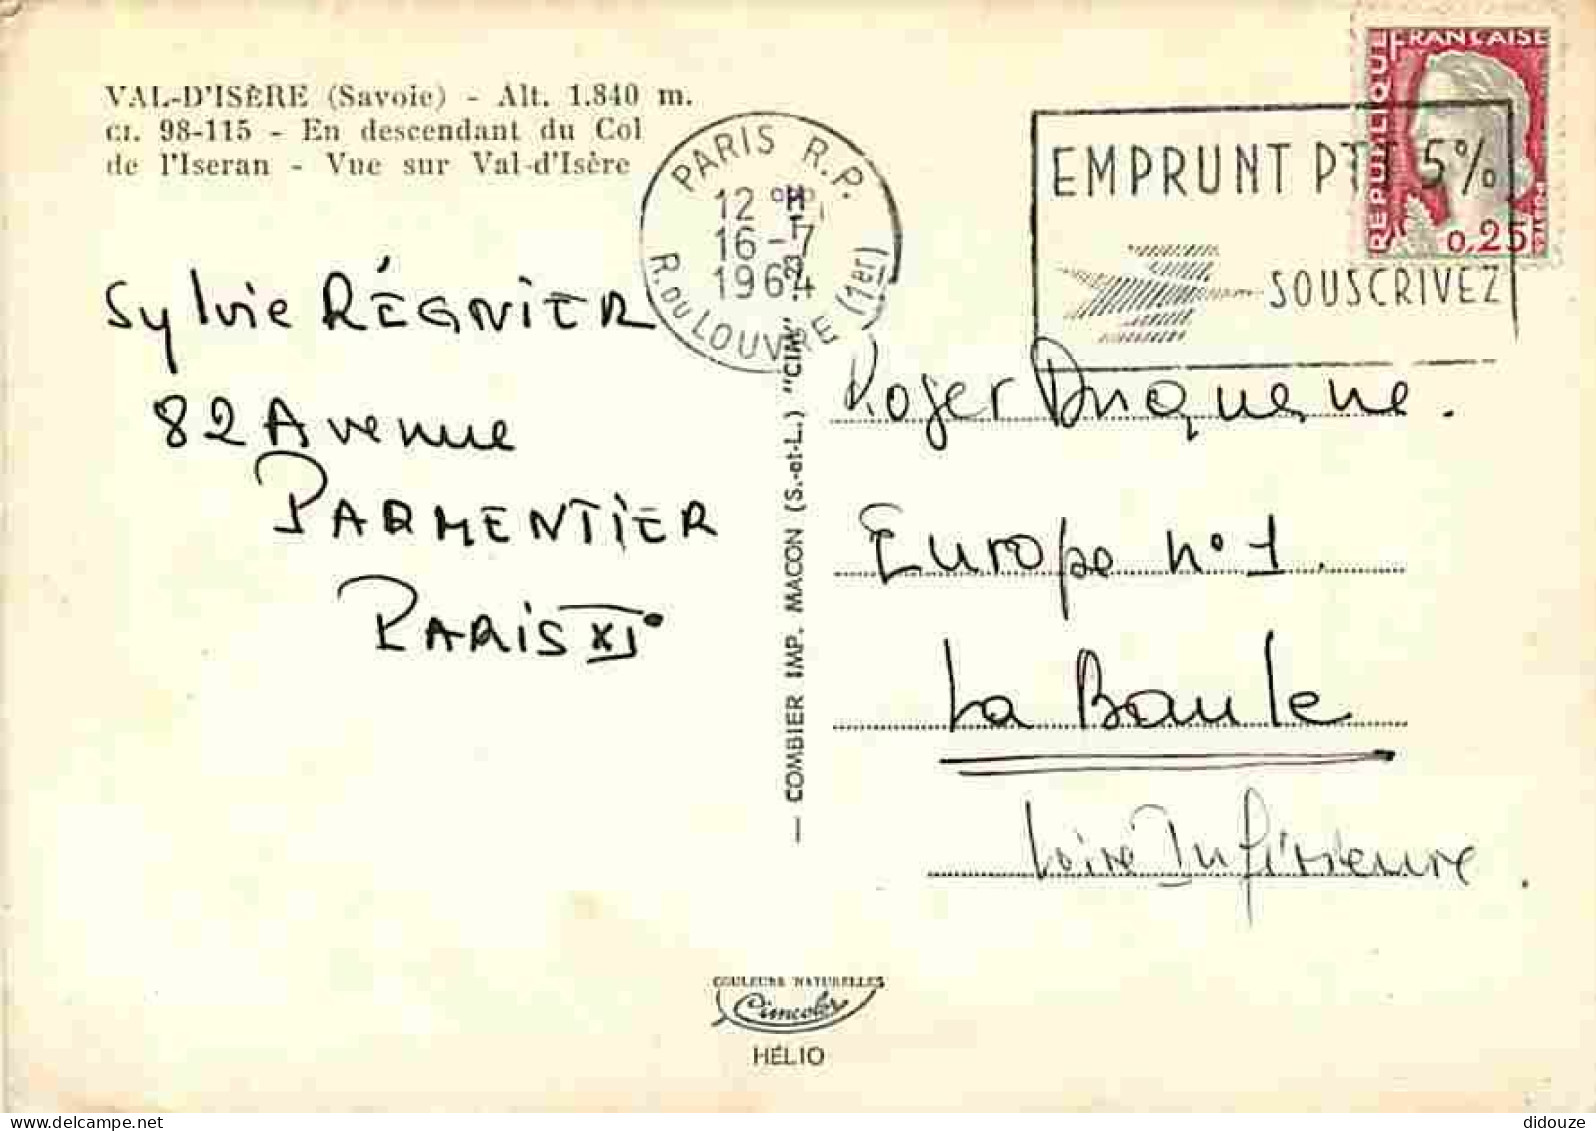 VAL-D'ISÈRE (Savoie) - Alt. 1.840 m.
CI. 98-115 - En descendant du Col
de l'Iseran - Vue sur Val-d'Isère
PARIS R.P.
12 H
16-7
1964
R. DU LOUVRE (1er)
RÉPUBLIQUE FRANÇAISE
0,25
EMPRUNT PTT 5%
SOUSCRIVEZ
Sylvie RÉGNIER
82 Avenue
PARMENTIER
PARIS XI°
— COMBIER IMP. MACON (S.-et-L.) "CIM"
Roger Duquesne.
Europe n°1.
La Baule
Loire Inférieure
COULEURS NATURELLES
Cimcolor
HÉLIO
delcampe.net
didouze